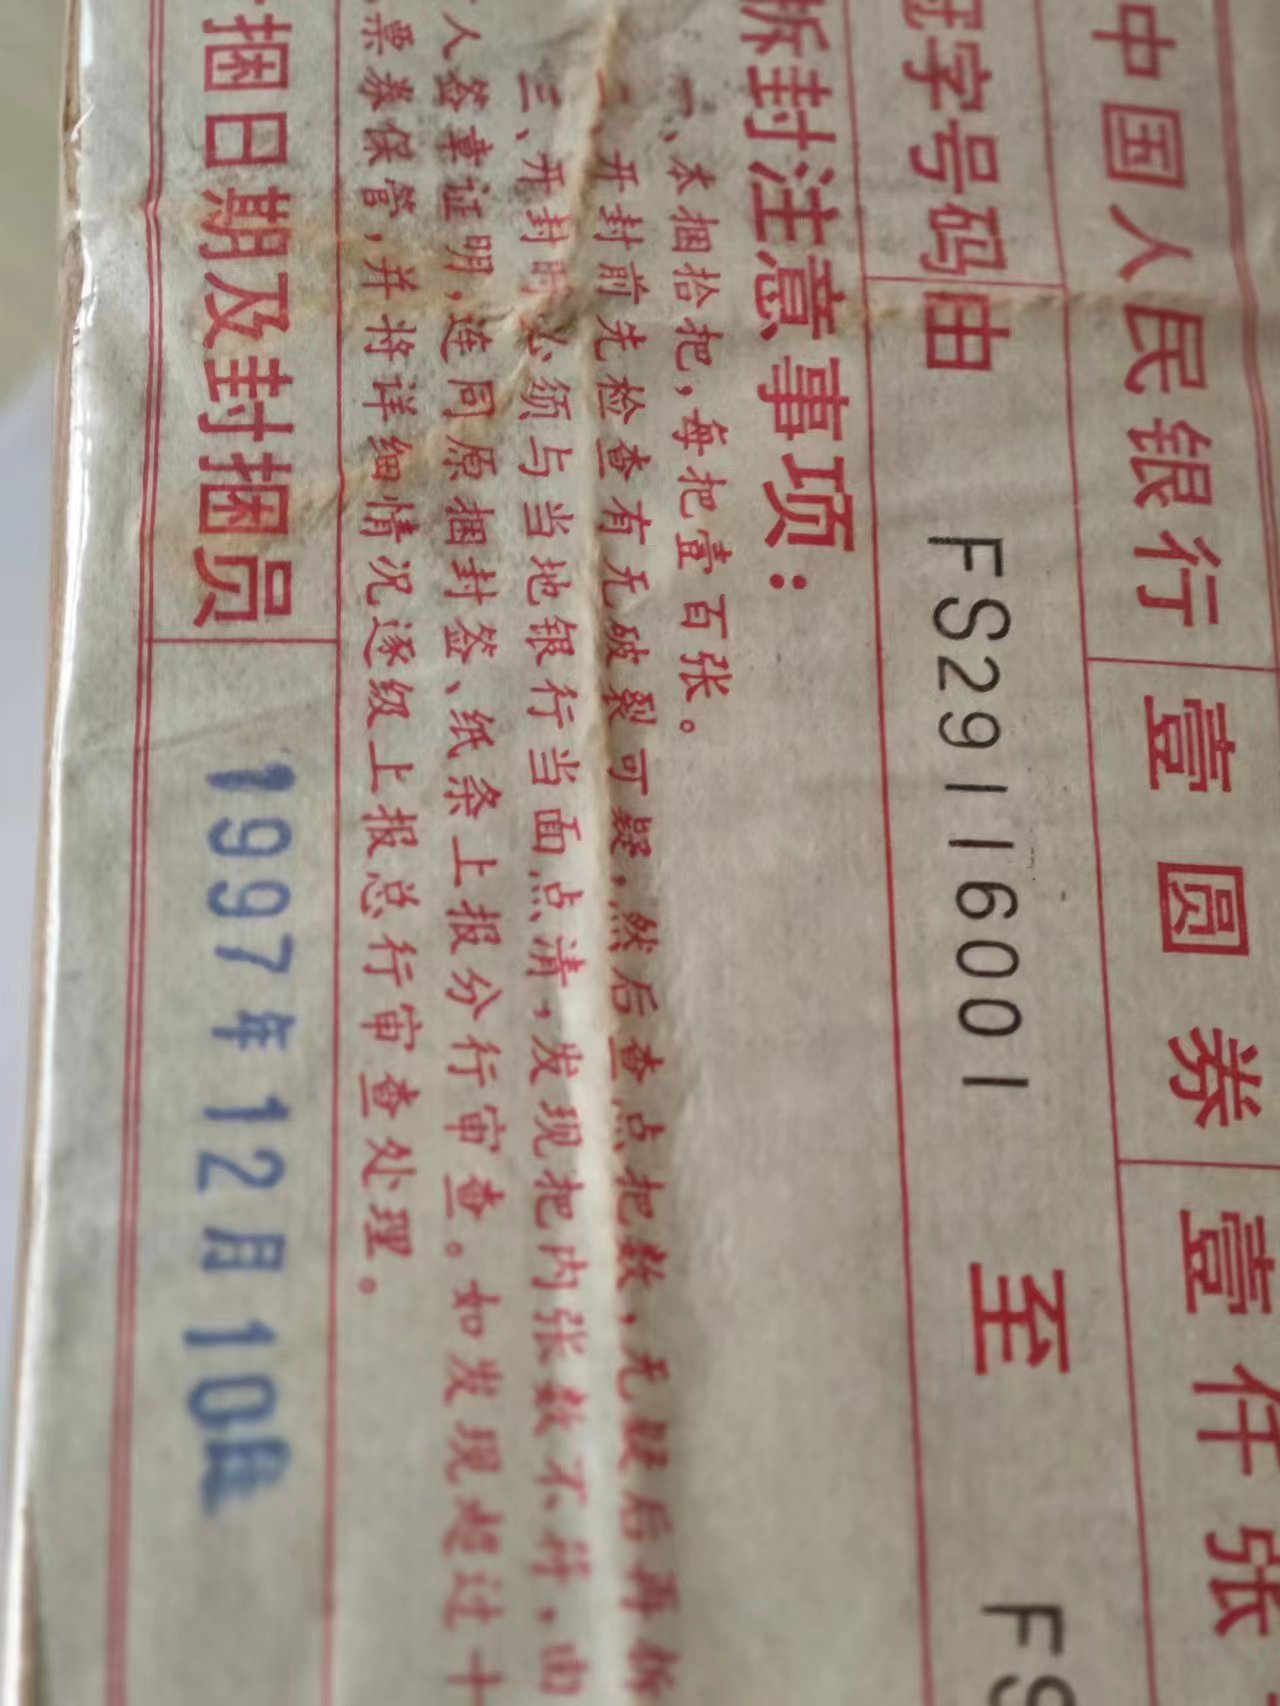 中国人民银行 壹圆券 壹仟张
冠字号码由 FS29116001 至 FS
拆封注意事项：
一、本捆拾把，每把壹百张。
二、开封前先检查有无破裂可疑，然后查点把数，无疑后再拆
三、开封时必须与当地银行当面点清，发现把内张数不符，由
人签章证明，连同原捆封签、纸条上报分行审查。如发现超过十
票券保管，并将详细情况逐级上报总行审查处理。
封捆日期及封捆员 1997年12月10